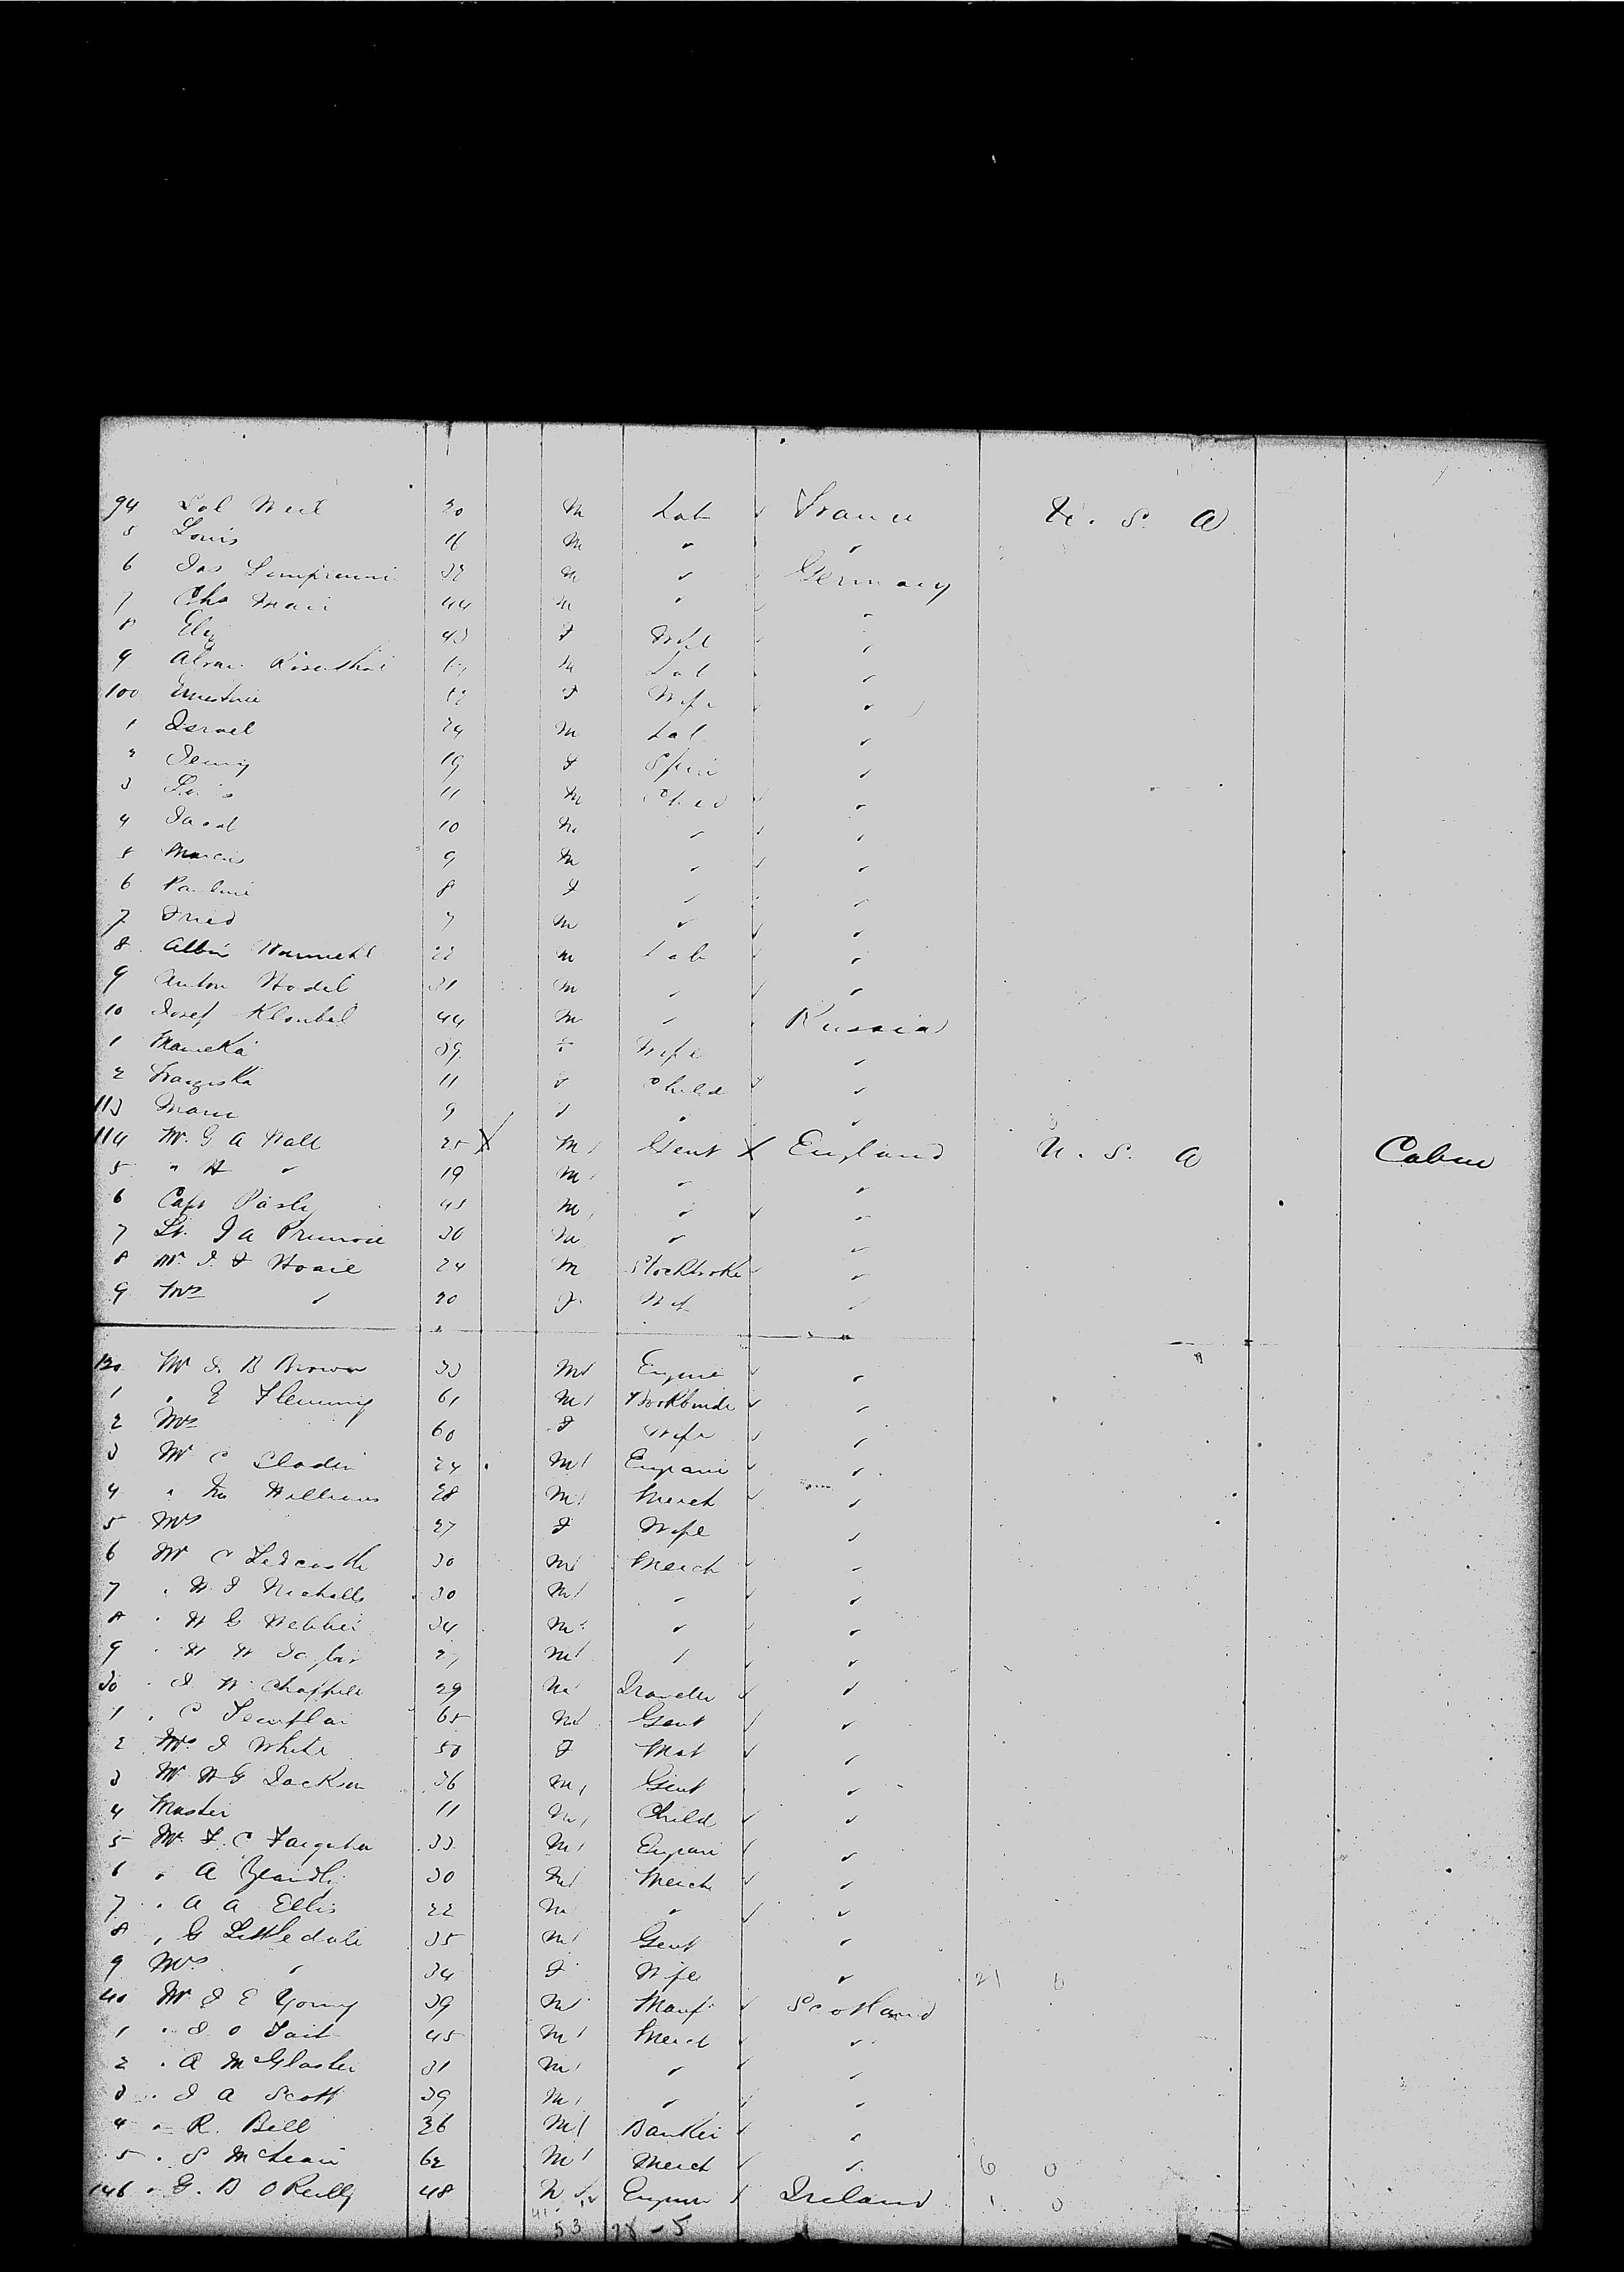 94 Sol Weil 20 M Lab France U. S. A
5 Louis 16 M " "
6 Jas 32 M " Germany
7 Chs 44 M " "
8 Eliz 43 F Wife "
9 Abra. Rosenthal M Lab "
100 Ernestine F Wife "
1 Israel 24 M Lab "
2 Jenny 19 F Spin "
3 Louis 11 M Child "
4 Jacob 10 M " "
5 Marcus 9 M " "
6 Pauline 8 F " "
7 Fried 7 M " "
8 Albin 22 M Lab "
9 Anton Hodel 31 M " "
10 Josef 44 M " Russia
1 39 F Wife "
2 Franziska 11 F Child "
113 Marie 9 F " "
114 Mr. G A Hall 25 M Gent England U. S. A Cabin
5 " H " 19 M " "
6 Capt 45 M " "
7 Lt. J A 30 M " "
8 Mr. J. F Hoare 24 M Stockbroke "
9 Mrs " 20 F Wif "
120 Mr J. B Brown 33 M Engine "
1 " E Fleming 61 M Bookbinde "
2 Mrs 60 F Wife "
3 Mr C 24 M "
4 " Williams 28 M Merch "
5 Mrs 27 F Wife "
6 Mr C 30 M Merch "
7 " W J Nicholls 30 M " "
8 " W G 34 M " "
9 " W Taylor 27 M " "
30 " J W Chappell 29 M Traveller "
1 " C Templar 65 M Gent "
2 Mrs J White 50 F Mat "
3 Mr W G Jackson 36 M Gent "
4 Master 11 M Child "
5 Mr. F. C Farquhar 33 M "
6 " A 30 M Merch "
7 " A A Ellis 22 M " "
8 " G Littledale 35 M Gent "
9 Mrs " 34 F Wife " 21 0
40 Mr J E Young 39 M Manf. Scotland
1 " J. O Tait 45 M Merch "
2 " A 31 M " "
3 " J A Scott 39 M " "
4 " R. Bell 36 M Banker "
5 " S McLean 62 M Merch " 6 0
146 " G. B O Reilly 48 M Ireland 1 0
41
53 28 - 5